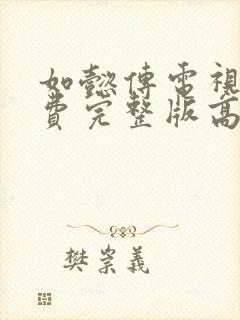 如懿傳電視
費完整版高
樊崇義